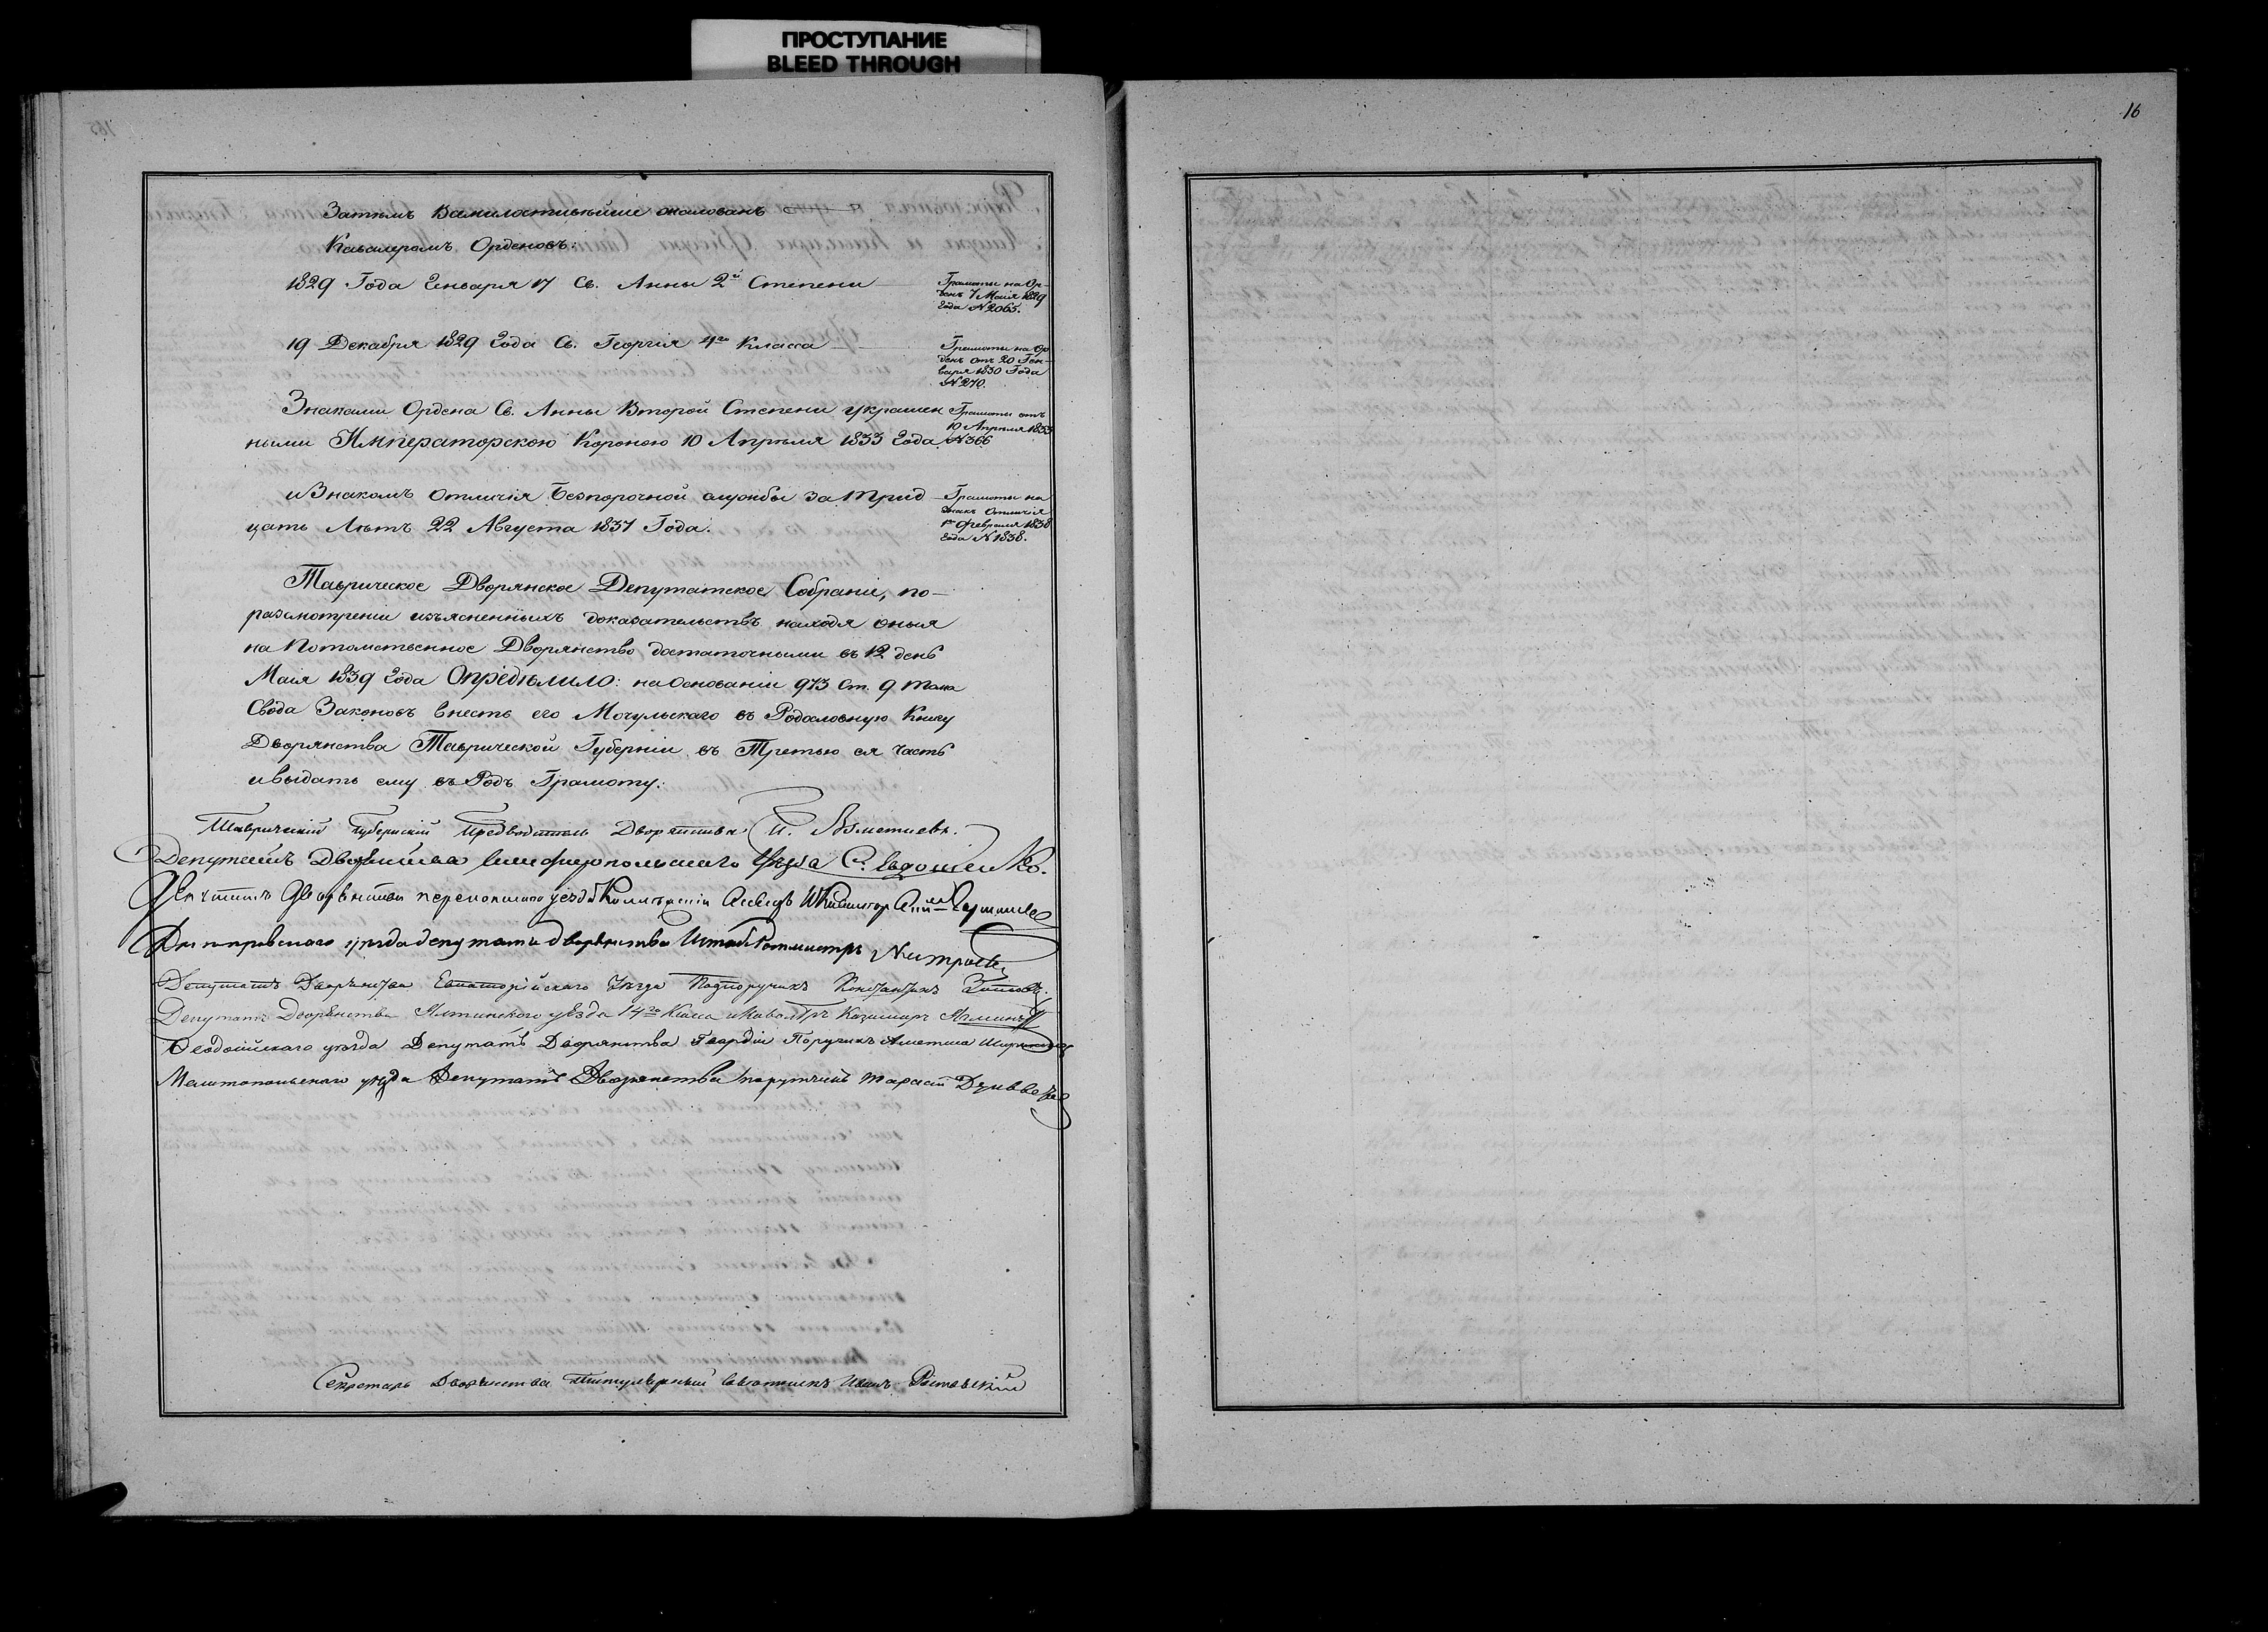 ПРОСТУПАНИЕ
BLEED THROUGH
16
Затемъ Всемилостивѣйше пожалованъ
Кавалеромъ Орденовъ:
1829 Года Генваря 17 Св. Анны 2й Степени
Грамоты на Ор-
денъ 7 Маія 1829
Года № 2065.
19 Декабря 1829 Года Св. Георгія 4го Класса
Грамоты на Ор
денъ отъ 20 Ген-
варя 1830 Года
№ 270.
Знаками Ордена Св. Анны Второй Степени украшен
ными Императорскою Короною 10 Апрѣля 1833 Года
Грамоты отъ
10 Апрѣля 1833
№ 366
и Знакомъ Отличія Безпорочной службы за Трид
цать Лѣтъ 22 Августа 1837 Года.
Грамоты на
Знакъ Отличія
Февраля 1838
Года № 1838.
Таврическое Дворянское Депутатское Собраніе, по-
разсмотреніи изъясненныхъ доказательствъ находя оныя
на Потомственное Дворянство достаточными въ 12 день
Маія 1839 Года Опредѣлило: на Основаніи 973 Ст. 9 тома
Свода Законовъ внесть его Мочульскаго въ Родословную Книгу
Дворянства Таврической Губерніи въ Третью ея часть
и выдать ему въ Родъ Грамоту.
Таврическій Губернскій Предводитель Дворянства
Депутатъ Дворянства Симферопольскаго Уѣзда С. Евдошенко.
Депутатъ Дворянства перекопскаго уезда
Днепровскаго уѣзда депутатъ дворянства Штабъ Ротмистръ
Депутатъ Дворянства Евпаторійскаго Уѣзда Подпоручикъ Константинъ
Депутатъ Дворянства Ялтинскаго уѣзда 14го Класса и Кавалеръ Казимиръ
Феодосійскаго уѣзда Депутатъ Дворянства Гвардіи Поручикъ Аметша
Мелитопольскаго уѣзда Депутатъ Дворянства поручикъ Тарасъ
Секретарь Дворянства Титулярный Советникъ Иванъ